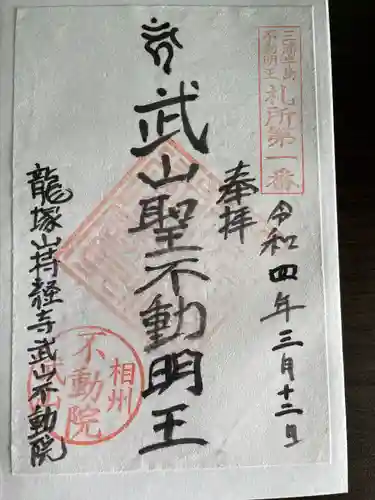 三浦半島
不動明王
札所第一番
奉拝
令和四年三月十二日
武山聖不動明王
龍塚山持経寺武山不動院
相州
不動院